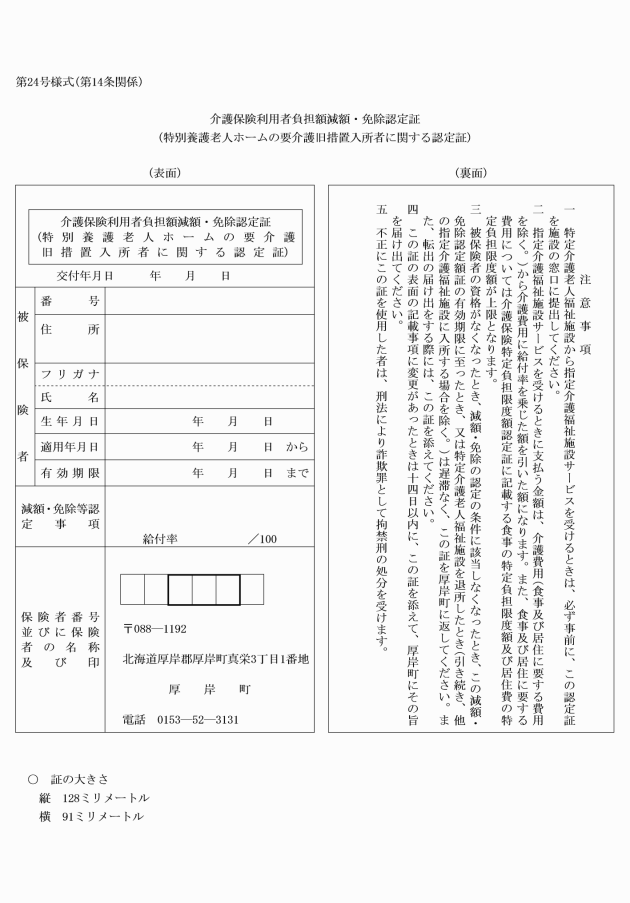 第24号様式(第14条関係)
介護保険利用者負担額減額・免除認定証
(特別養護老人ホームの要介護旧措置入所者に関する認定証)
(表面)
介護保険利用者負担額減額・免除認定証
(特別養護老人ホームの要介護
旧措置入所者に関する認定証)
交付年月日　　年　　月　　日
被保険者
番号
住所
フリガナ
氏名
生年月日　　年　　月　　日
適用年月日　　年　　月　　日　から
有効期限　　年　　月　　日　まで
減額・免除等認
定事項
給付率　　／100
保険者番号
並びに保険
者の名称
及び印
〒088―1192
北海道厚岸郡厚岸町真栄3丁目1番地
厚岸町
電話　0153―52―3131
(裏面)
注意事項
一　特定介護老人福祉施設から指定介護福祉施設サービスを受けるときは、必ず事前に、この認定証
を施設の窓口に提出してください。
二　指定介護福祉施設サービスを受けるときに支払う金額は、介護費用(食事及び居住に要する費用
を除く。)から介護費用に給付率を乗じた額を引いた額になります。また、食事及び居住に要する
費用については介護保険特定負担限度額認定証に記載する食事の特定負担限度額及び居住費の特
定負担限度額が上限となります。
三　被保険者の資格がなくなったとき、減額・免除の認定の条件に該当しなくなったとき、この減額・
免除認定額証の有効期限に至ったとき、又は特定介護老人福祉施設を退所したとき(引き続き、他
の指定介護福祉施設に入所する場合を除く。)は遅滞なく、この証を厚岸町に返してください。ま
た、転出の届け出をする際には、この証を添えてください。
四　この証の表面の記載事項に変更があったときは十四日以内に、この証を添えて、厚岸町にその旨
を届け出てください。
五　不正にこの証を使用した者は、刑法により詐欺罪として拘禁刑の処分を受けます。
○　証の大きさ
縦　128ミリメートル
横　91ミリメートル